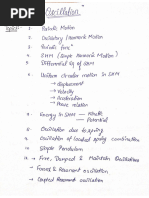 "Oscillation"
Topics
1. Periodic Motion
2. Oscillatory/Harmonic Motion
3. Periodic funⁿ
4. SHM (Simple Harmonic Motion)
5. Differential Eqⁿ of SHM
6. Uniform circular motion in SHM
→ displacement
→ Velocity
→ Acceleration
→ Phase relation
7. Energy in SHM
Kinetic
Potential
8. Oscillation due to spring
9. Oscillation of loaded spring combination
10. Simple Pendulum
11. Free, Damped & Maintain Oscillation
12. Forced & Resonant oscillation
13. Coupled Resonant oscillation